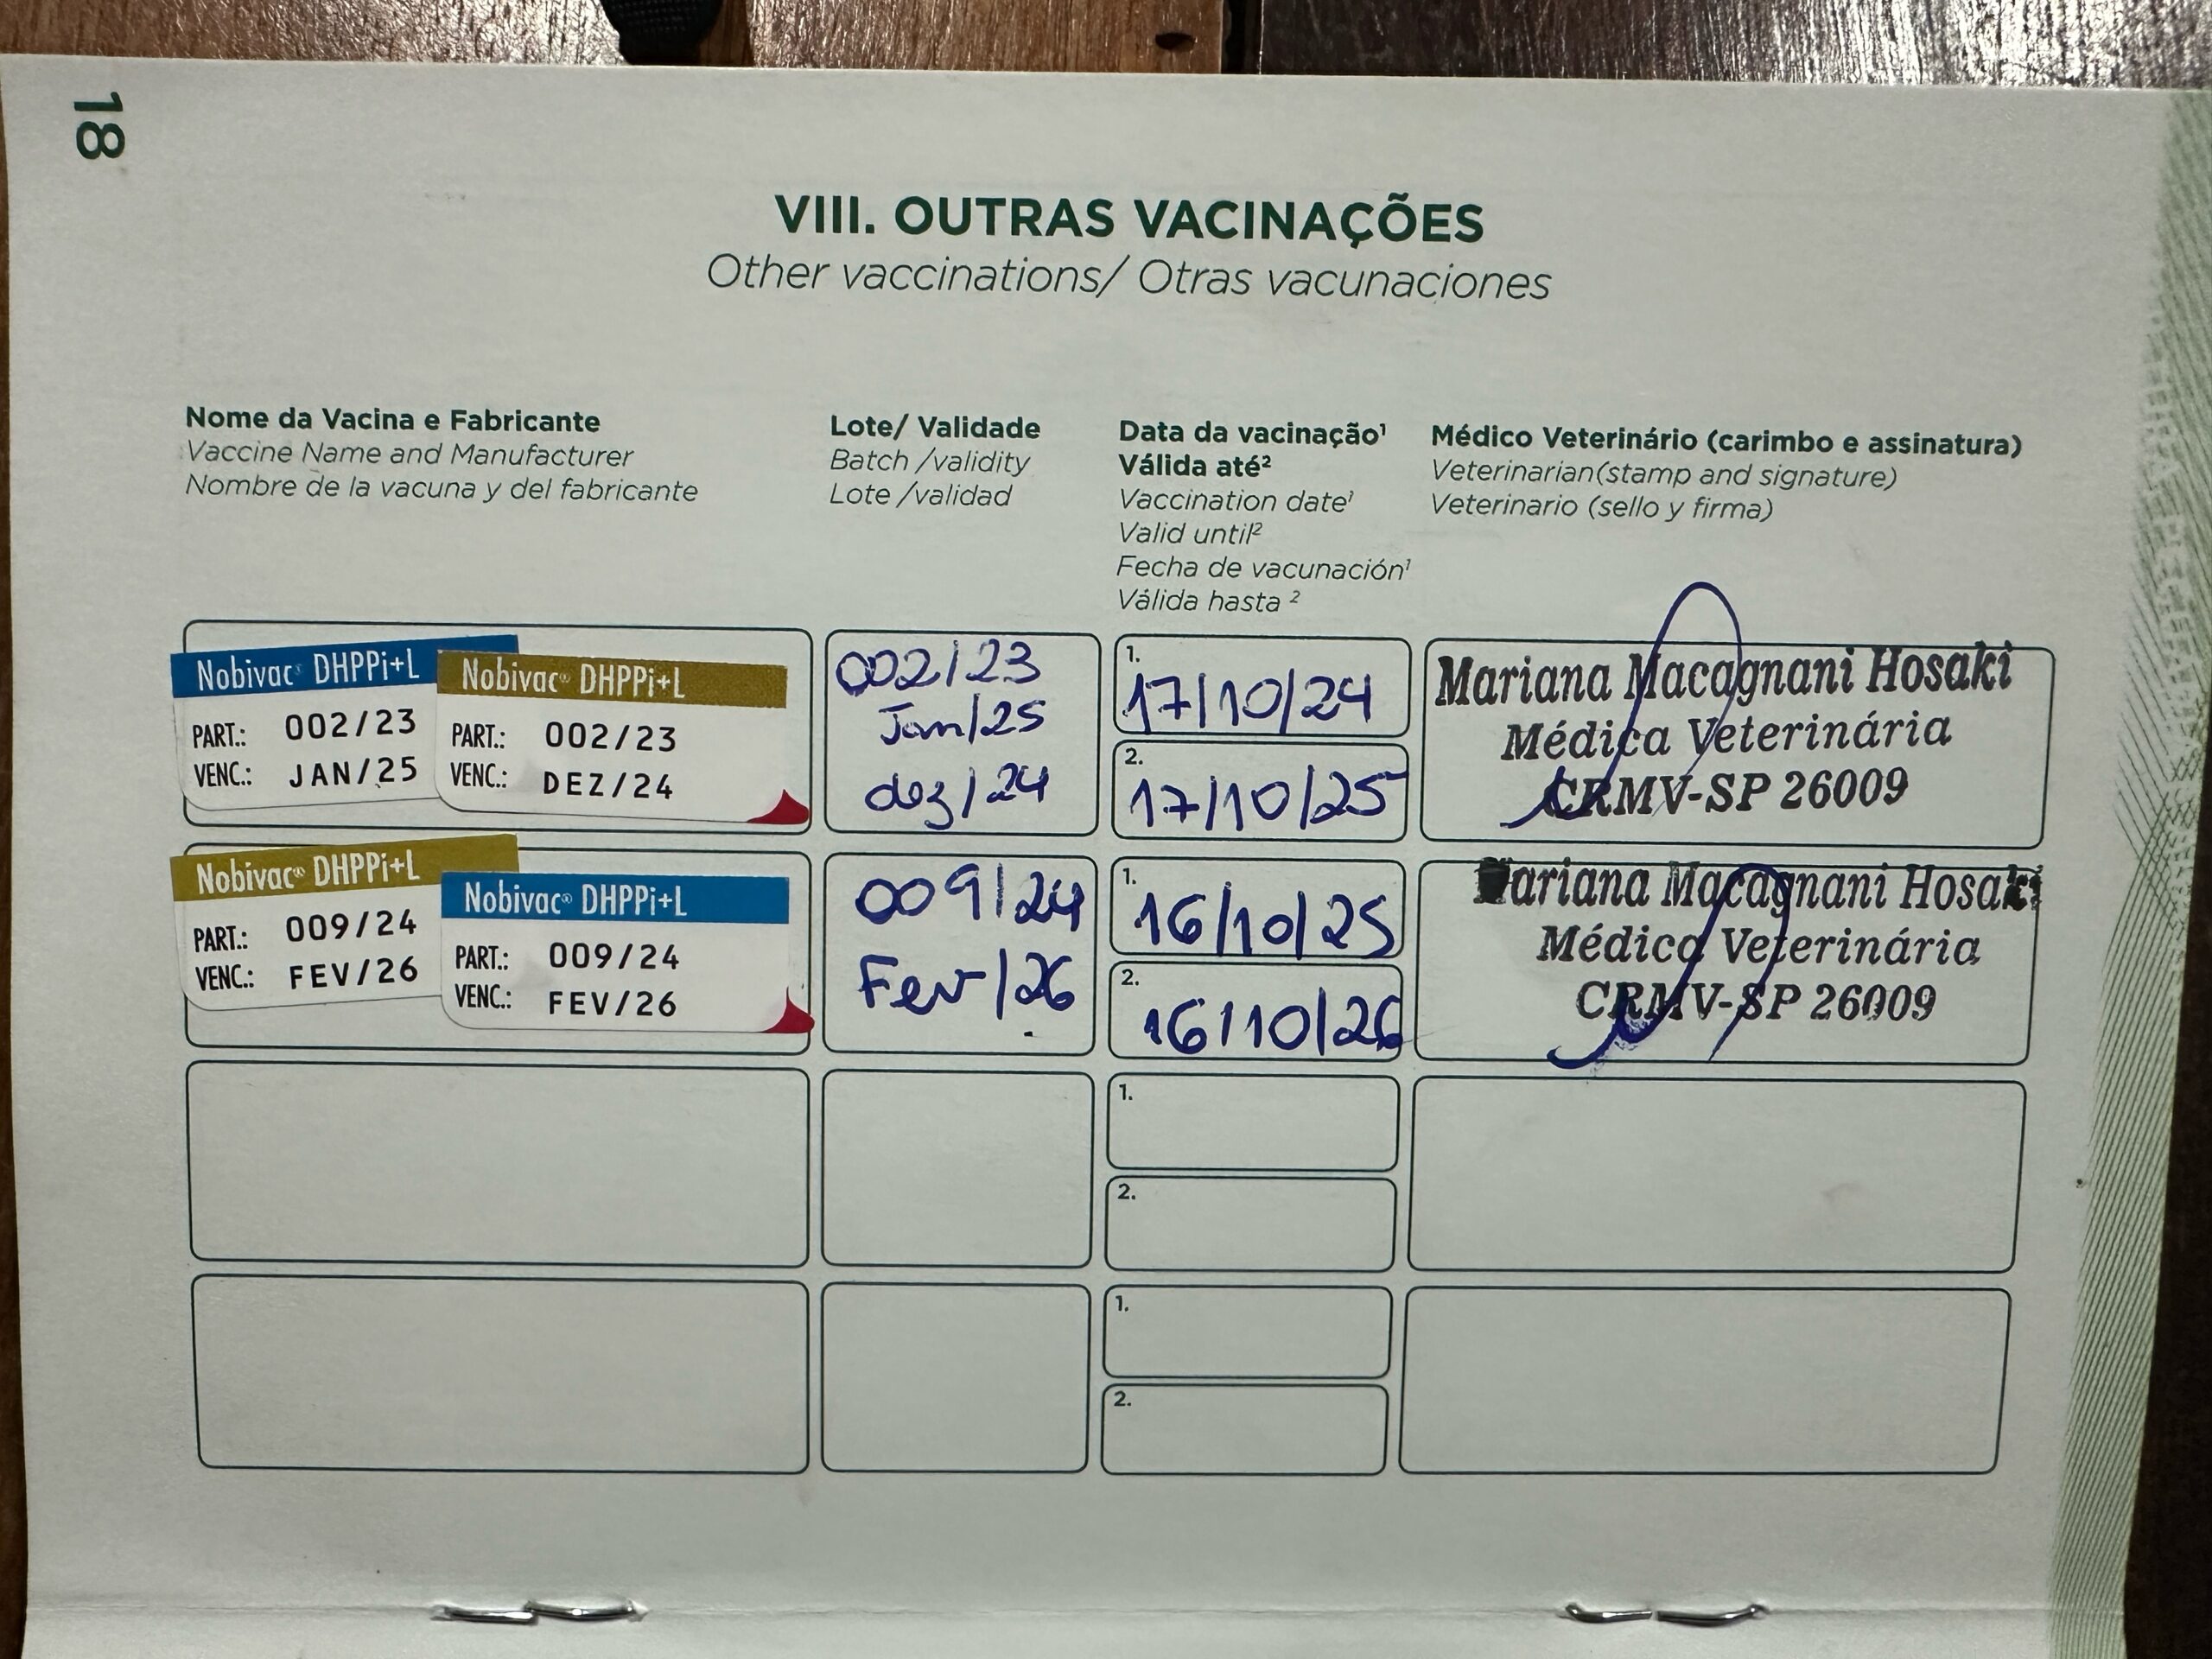 18
VIII. OUTRAS VACINAÇÕES
Other vaccinations/ Otras vacunaciones
Nome da Vacina e Fabricante
Vaccine Name and Manufacturer
Nombre de la vacuna y del fabricante
Lote/ Validade
Batch /validity
Lote /validad
Data da vacinação¹
Válida até²
Vaccination date¹
Valid until²
Fecha de vacunación¹
Válida hasta ²
Médico Veterinário (carimbo e assinatura)
Veterinarian(stamp and signature)
Veterinario (sello y firma)
Nobivac® DHPPi+L
PART.: 002/23
VENC.: JAN/25
Nobivac® DHPPi+L
PART.: 002/23
VENC.: DEZ/24
002/23
Jan/25
dez/24
1.
17/10/24
2.
17/10/25
Mariana Macagnani Hosaki
Médica Veterinária
CRMV-SP 26009
Nobivac® DHPPi+L
PART.: 009/24
VENC.: FEV/26
Nobivac® DHPPi+L
PART.: 009/24
VENC.: FEV/26
009/24
Fev/26
1.
16/10/25
2.
16/10/26
Mariana Macagnani Hosaki
Médica Veterinária
CRMV-SP 26009
1.
2.
1.
2.